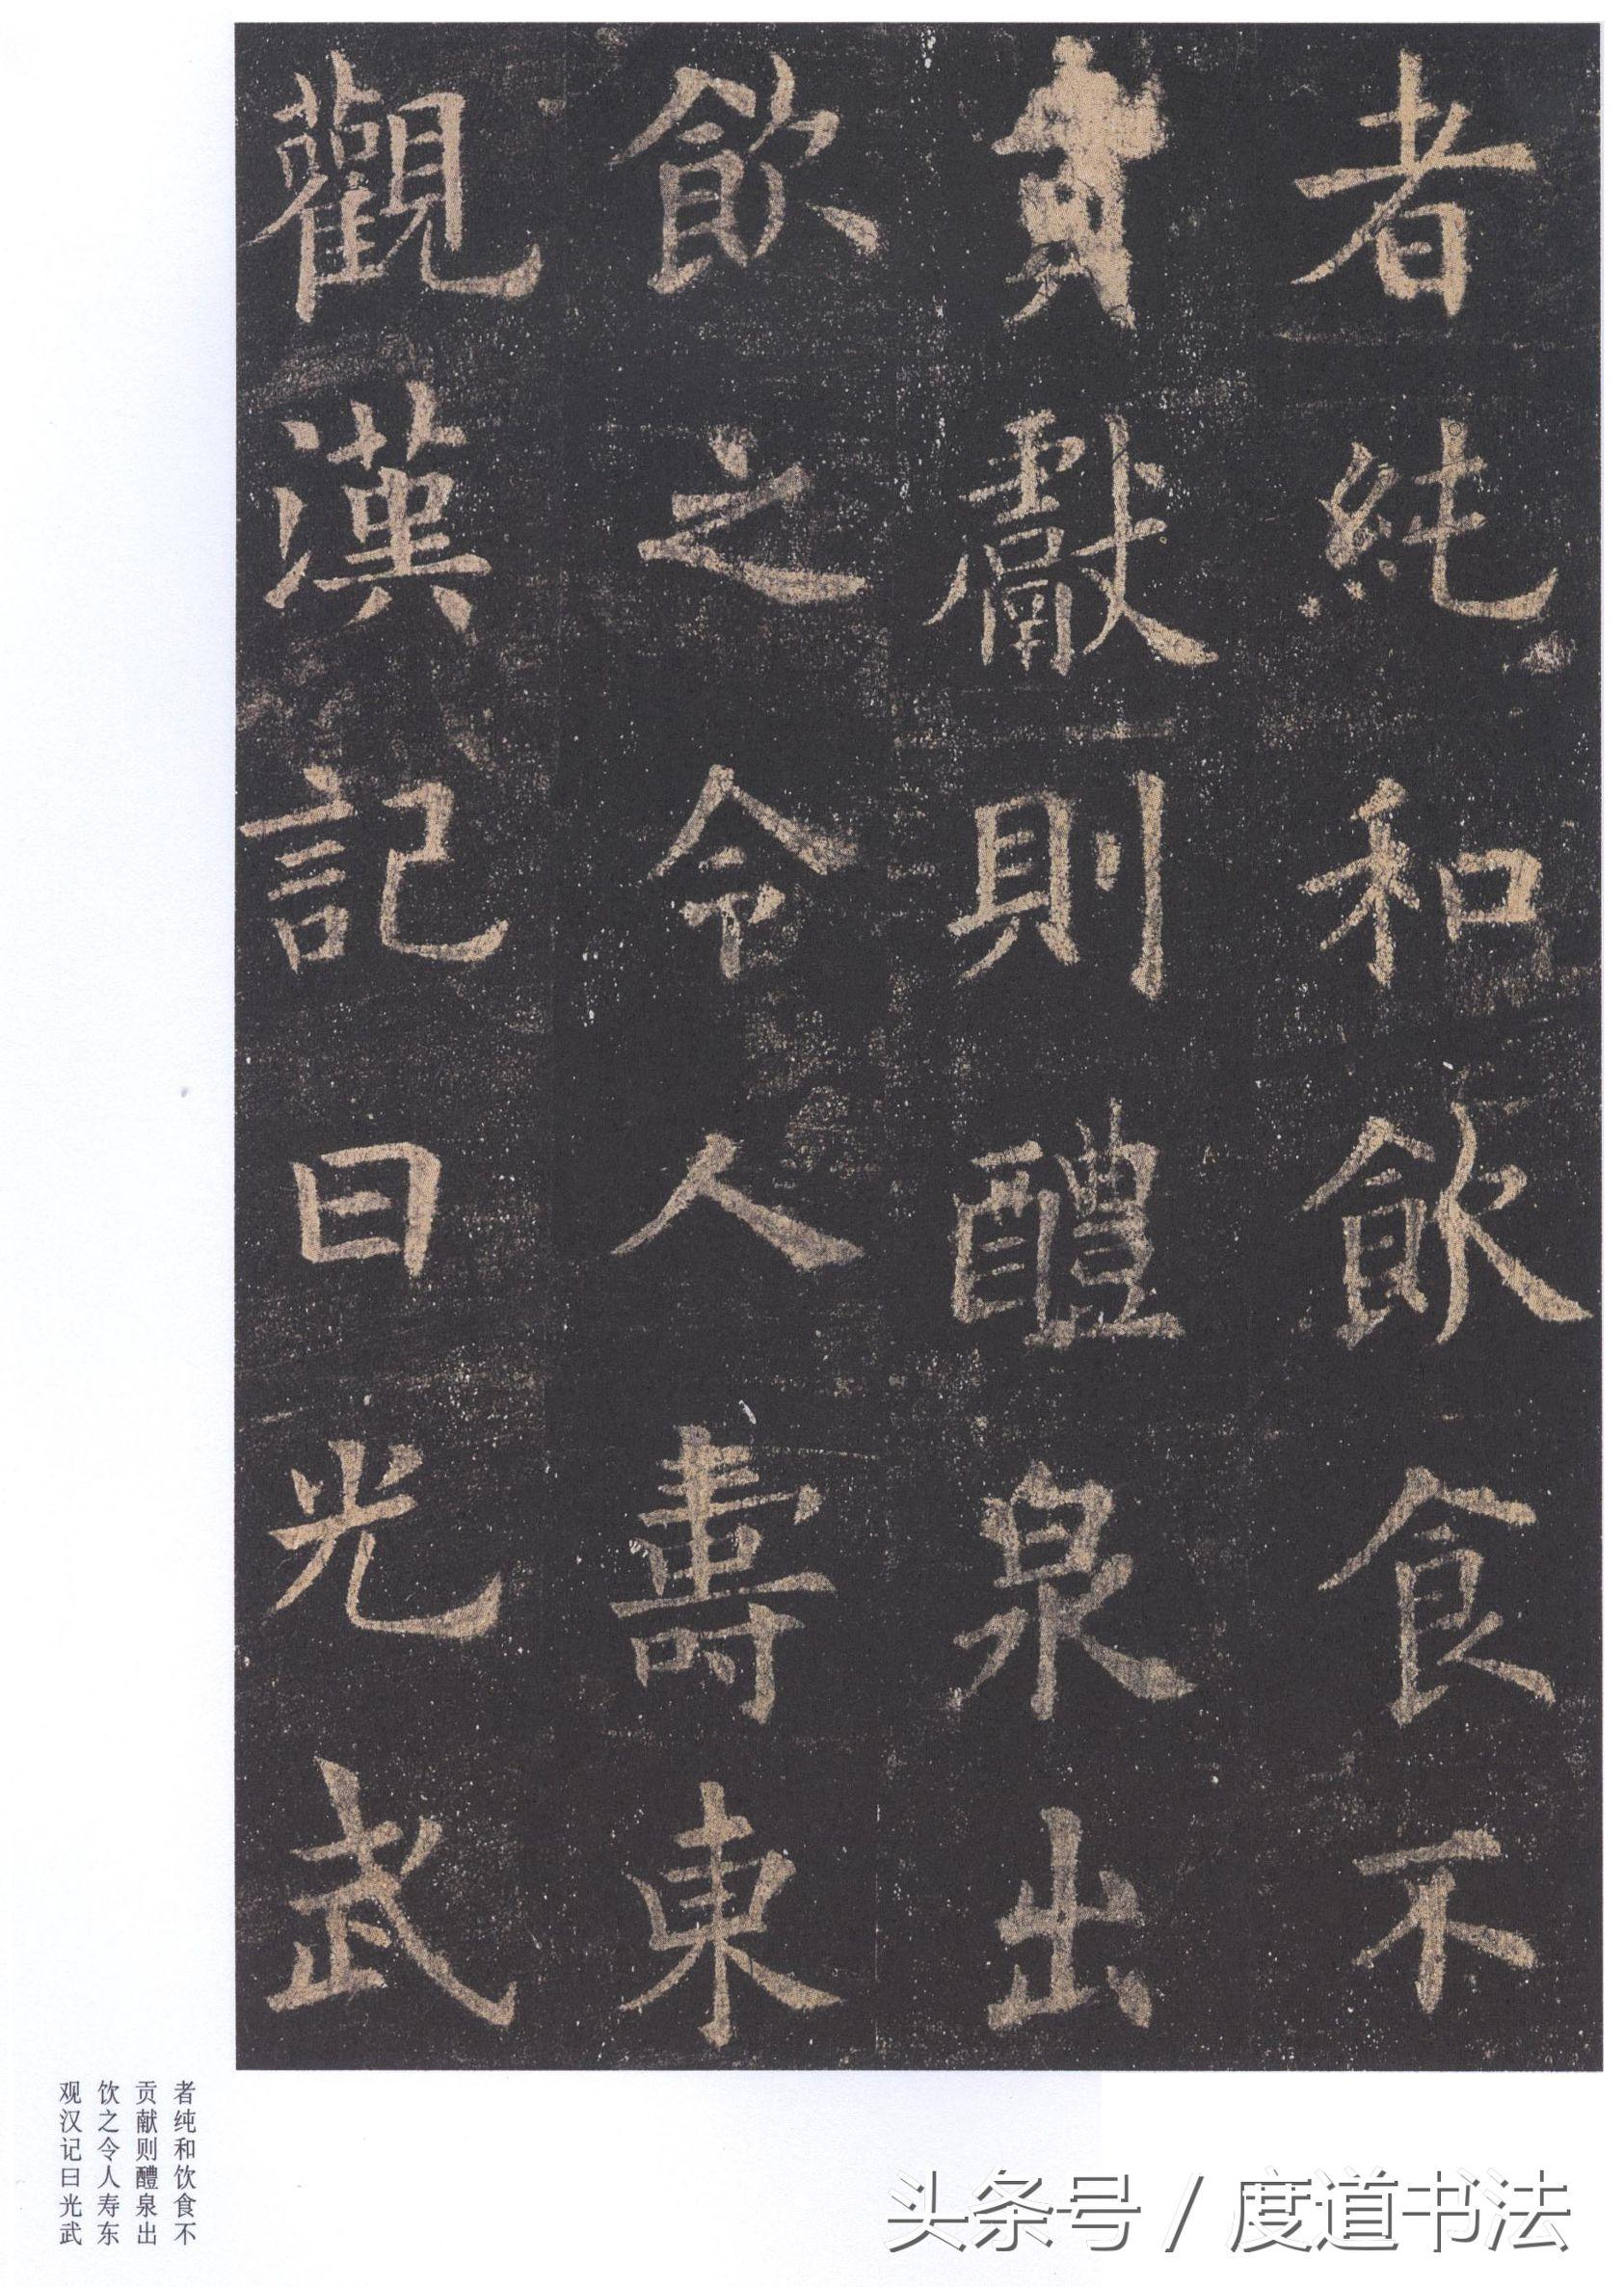 者純和飲食不
貢獻則醴泉出
飲之令人壽東
觀漢記曰光武
者纯和饮食不
贡献则醴泉出
饮之令人寿东
观汉记曰光武
头条号 / 度道书法